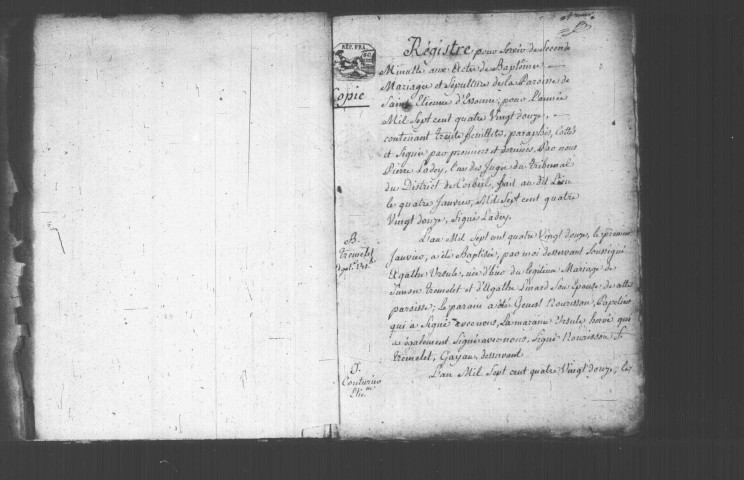 RÉG. FRA.
Copie
Régistre pour Servir de Seconde
Minutte aux Actes de Baptême
Mariage et Sépulture de la Paroisse de
Saint Etienne d'Essonne; pour l'année
Mil Sept cent quatre Vingt douze,
contenant trente feuillets, paraphés, Cottés
et Signés par premiers et derniers, Par nous
Pierre Ladey, l'un des Juges du Tribunal
du District de Corbeil, fait au dit Lieu
le quatre Janvier, Mil Sept cent quatre
Vingt douze, Signé Ladey.
B.
Tremelet
L'an Mil Sept cent quatre Vingt douze, le premier
Janvier, a été Baptisée, par moi desservant Soussigné
Agathe Ursule, née d'hier du légitime Mariage de
Simon Tremelet et d'Agathe Linard Son Epouse de cette
paroisse; le parain a été Nourisson,
qui a Signé avec nous, La maraine Ursule qui
a également Signé avec nous, Signé Nourisson,
Tremelet, Gayan, desservant
S.
Couturier
L'an Mil Sept cent quatre Vingt douze, les